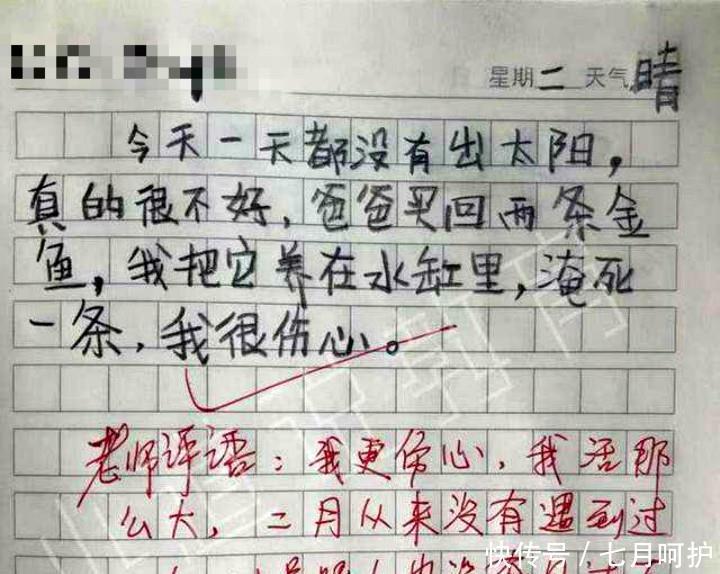 星期二 天气 晴
今天一天都没有出太阳，
真的很不好，爸爸买回两条金
鱼，我把它养在水缸里，淹死
一条，我很伤心。
老师评语：我更伤心，我活那
么大，二月从来没有遇到过
快传号／七月呵护